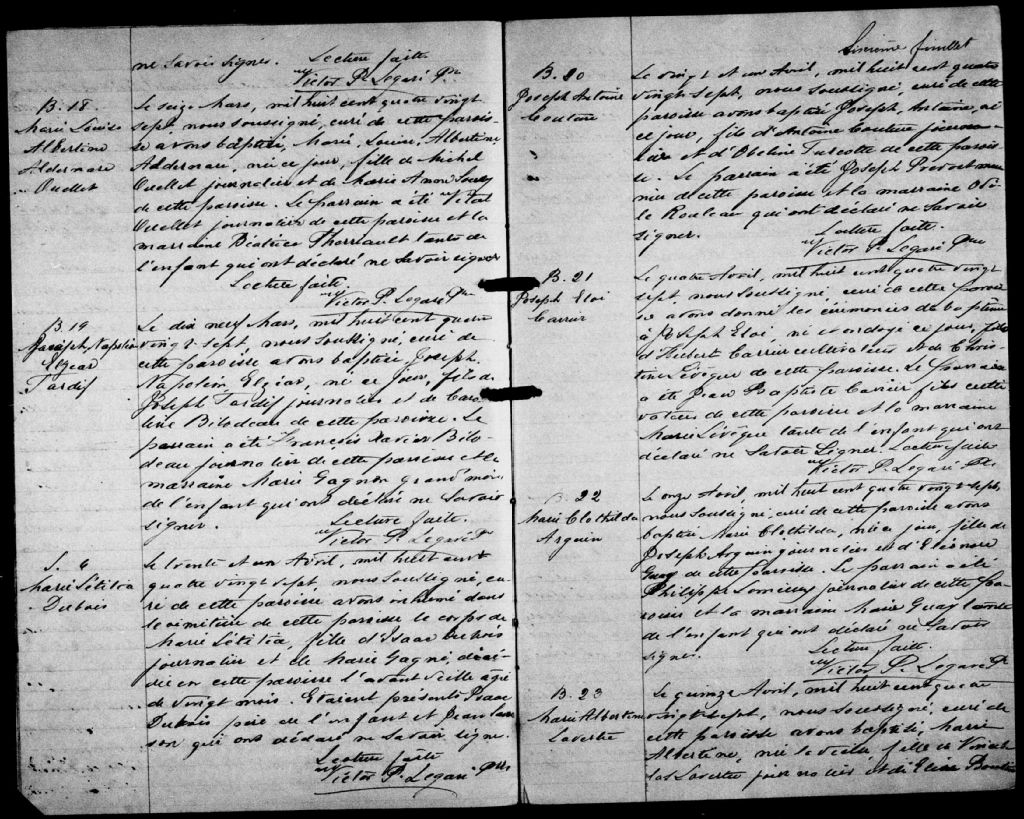 ne Savoir Signer. Lecture faite
Victor P. Legaré Ptre
B. 18
Marie Louise
Albertine
Aldermare
Ouellet
Le seize Mars, mil huit cent quatre vingt
sept, nous soussigné, curé de cette parois-
se avons baptisé, Marie, Louise, Albertine,
Aldermare, née ce jour, fille de Michel
Ouellet journalier et de Marie Anne Soucy
de cette paroisse. Le parrain a été Vital
Ouellet journalier de cette paroisse et la
marraine Béatrice Therriault tante de
l'enfant qui ont déclaré ne Savoir signer
Lecture faite.
Victor P. Legaré Ptre
B. 19
Joseph Napoléon
Elzéar
Tardif
Le dix neuf Mars, mil huit cent quatre
vingt sept, nous soussigné, curé de
cette paroisse avons baptisé Joseph
Napoléon Elzéar, né ce jour, fils de
Joseph Tardif journalier et de Caro-
line Bilodeau de cette paroisse. Le
parrain a été François Xavier Bilo-
deau journalier de cette paroisse et la
marraine Marie Gagnon Grand'mère
de l'enfant qui ont déclaré ne Savoir
signer. Lecture faite.
Victor P. Legaré Ptre
S. 4
Marie Létitia
Dubois
Le trente et un Avril, mil huit cent
quatre vingt sept, nous soussigné, cu-
ré de cette paroisse avons inhumé dans
le cimetière de cette paroisse le corps de
Marie Létitia, fille d'Isaac Dubois
journalier et de Marie Gagné, décé-
dée en cette paroisse l'avant veille âgée
de vingt mois. Etaient présents Isaac
Dubois père de l'enfant et Jean
son qui ont déclaré ne Savoir signe.
Lecture faite
Victor P. Legaré Ptre
Sixième feuillet
B. 20
Joseph Antoine
Couture
Le vingt et un Avril, mil huit cent quatre
vingt sept, nous soussigné, curé de cette
paroisse avons baptisé Joseph, Antoine, né
ce jour, fils d'Antoine Couture journa-
lier et d'Obeline Turcotte de cette parois-
se. Le parrain a été Joseph Prevost menu
sier de cette paroisse et la marraine Odi-
le Rouleau qui ont déclaré ne Savoir
signer. Lecture faite.
Victor P. Legaré Ptre
B. 21
Joseph Eloi
Carrier
Le quatre Avril, mil huit cent quatre vingt
sept, nous soussigné, curé de cette parois
se avons donné les cérémonies du baptême
à Joseph Eloi né et ondoyé ce jour, fils
d'Hubert Carrier cultivateur et de Chris-
tine Lévêque de cette paroisse. Le parrain
a été Jean Baptiste Carrier fils culti
vateur de cette paroisse et la marraine
Marie Lévêque tante de l'enfant qui ont
déclaré ne Savoir Signer. Lecture faite
Victor P. Legaré Ptre
B. 22
Marie Clothilda
Arguin
Le onze Avril, mil huit cent quatre vingt sept,
nous soussigné, curé de cette paroisse avons
baptisé Marie Clothilda, née ce jour, fille de
Joseph Arguin journalier et d'Eléonore
Guay de cette paroisse. Le parrain a été
Philippe Lemieux journalier de cette pa-
roisse et la marraine Marie Guay tante
de l'enfant qui ont déclaré ne Savoir
signer. Lecture faite.
Victor P. Legaré Ptre
B. 23
Marie Albertine
Lavertu
Le quinze Avril, mil huit cent quatre
vingt sept, nous soussigné, curé de
cette paroisse avons baptisé, Marie
Albertine, née la veille fille de
Lavertu journalier et d'Elise